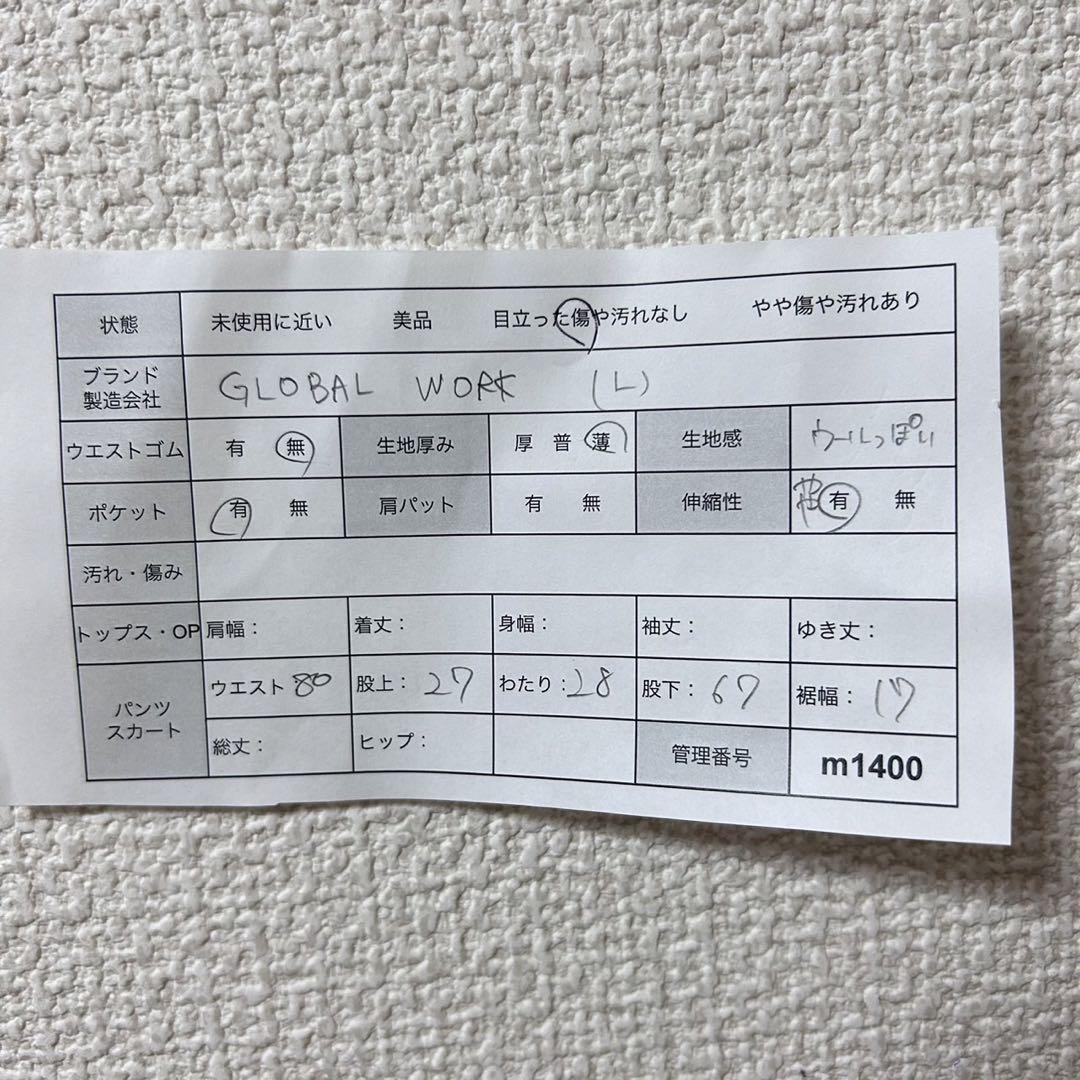 状態 未使用に近い 美品 目立った傷や汚れなし やや傷や汚れあり
ブランド
製造会社 GLOBAL WORK (L)
ウエストゴム 有 無 生地厚み 厚 普 薄 生地感 ウールっぽい
ポケット 有 無 肩パット 有 無 伸縮性 有 無
汚れ・傷み
トップス・OP 肩幅: 着丈: 身幅: 袖丈: ゆき丈:
パンツ
スカート ウエスト 80 股上: 27 わたり: 28 股下: 67 裾幅: 17
総丈: ヒップ: 管理番号 m1400